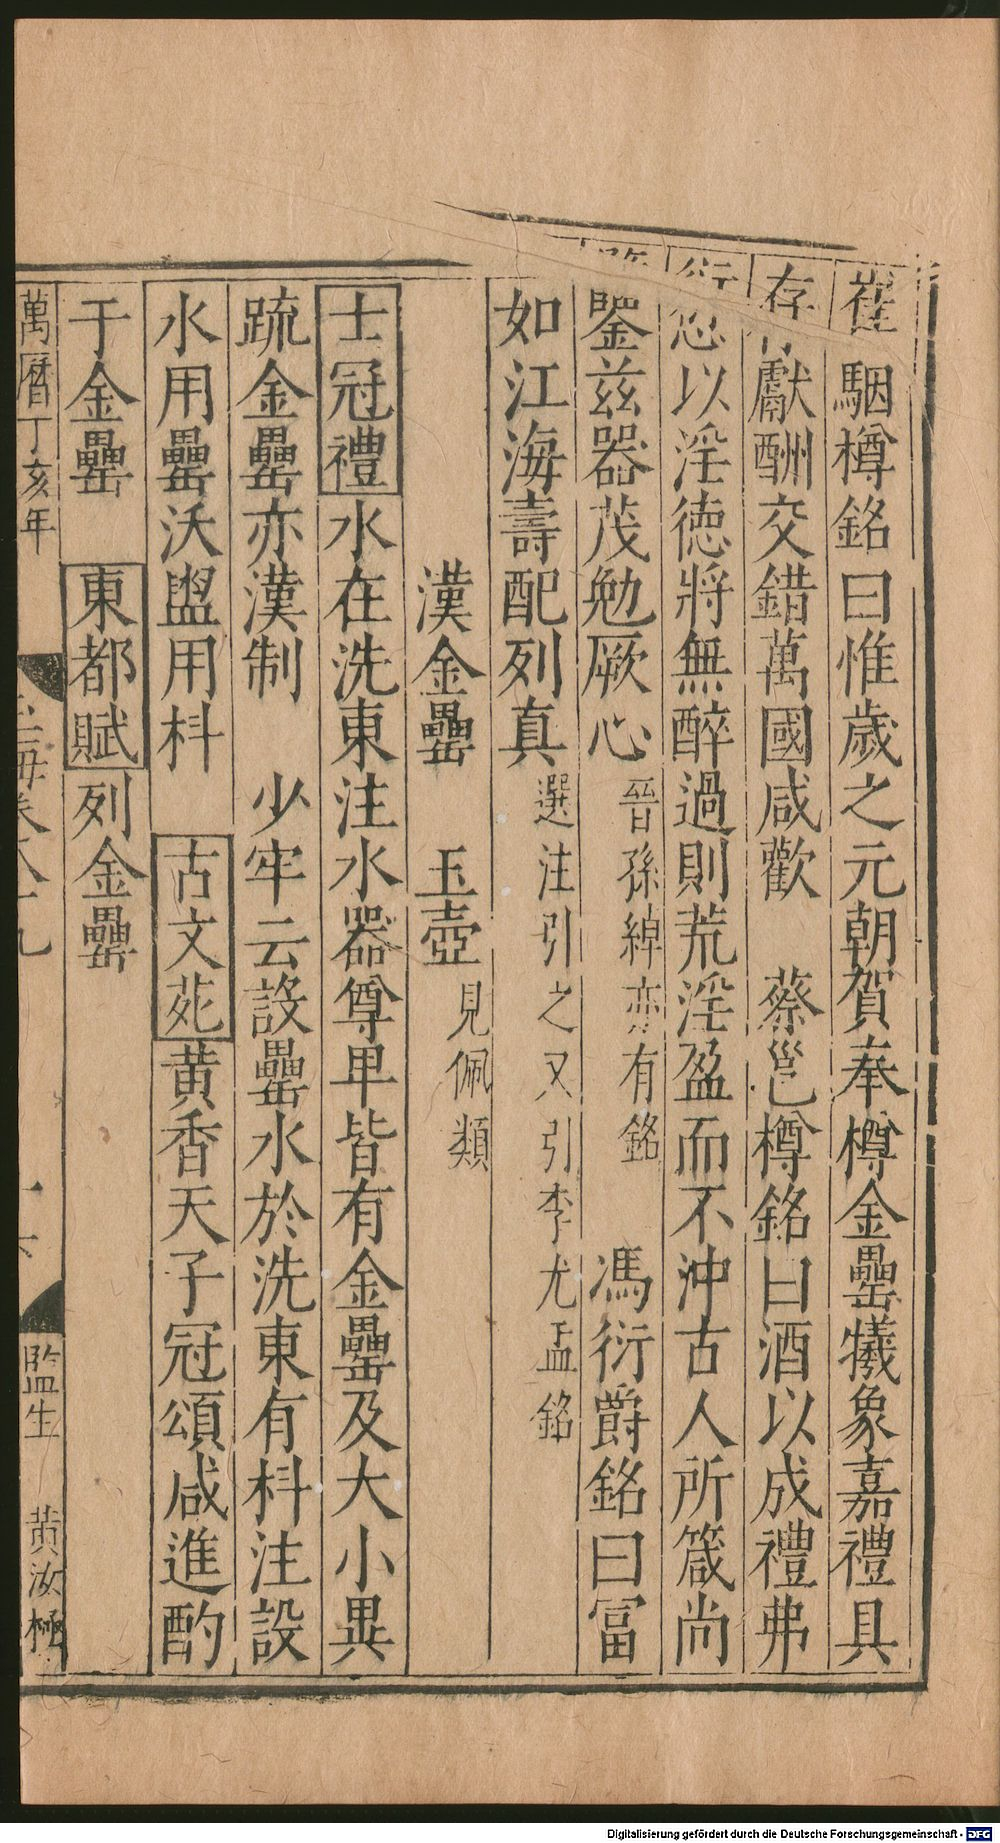 崔駰樽銘曰惟歲之元朝賀奉樽金罍犧象嘉禮具
存獻酬交錯萬國咸歡　蔡邕樽銘曰酒以成禮弗
愆以淫德將無醉過則荒淫盈而不沖古人所箴尚
鑒茲器茂勉厥心晉孫綽亦有銘　馮衍爵銘曰富
如江海壽配列真選注引之又引李尤盂銘
漢金罍　玉壺見佩類
士冠禮水在洗東注水器尊卑皆有金罍及大小異
疏金罍亦漢制　少牢云設罍水於洗東有枓注設
水用罍沃盥用枓　古文苑黃香天子冠頌咸進酌
于金罍　東都賦列金罍
萬曆丁亥年
玉海卷八十九
監生　黃汝極
Digitalisierung gefördert durch die Deutsche Forschungsgemeinschaft - DFG